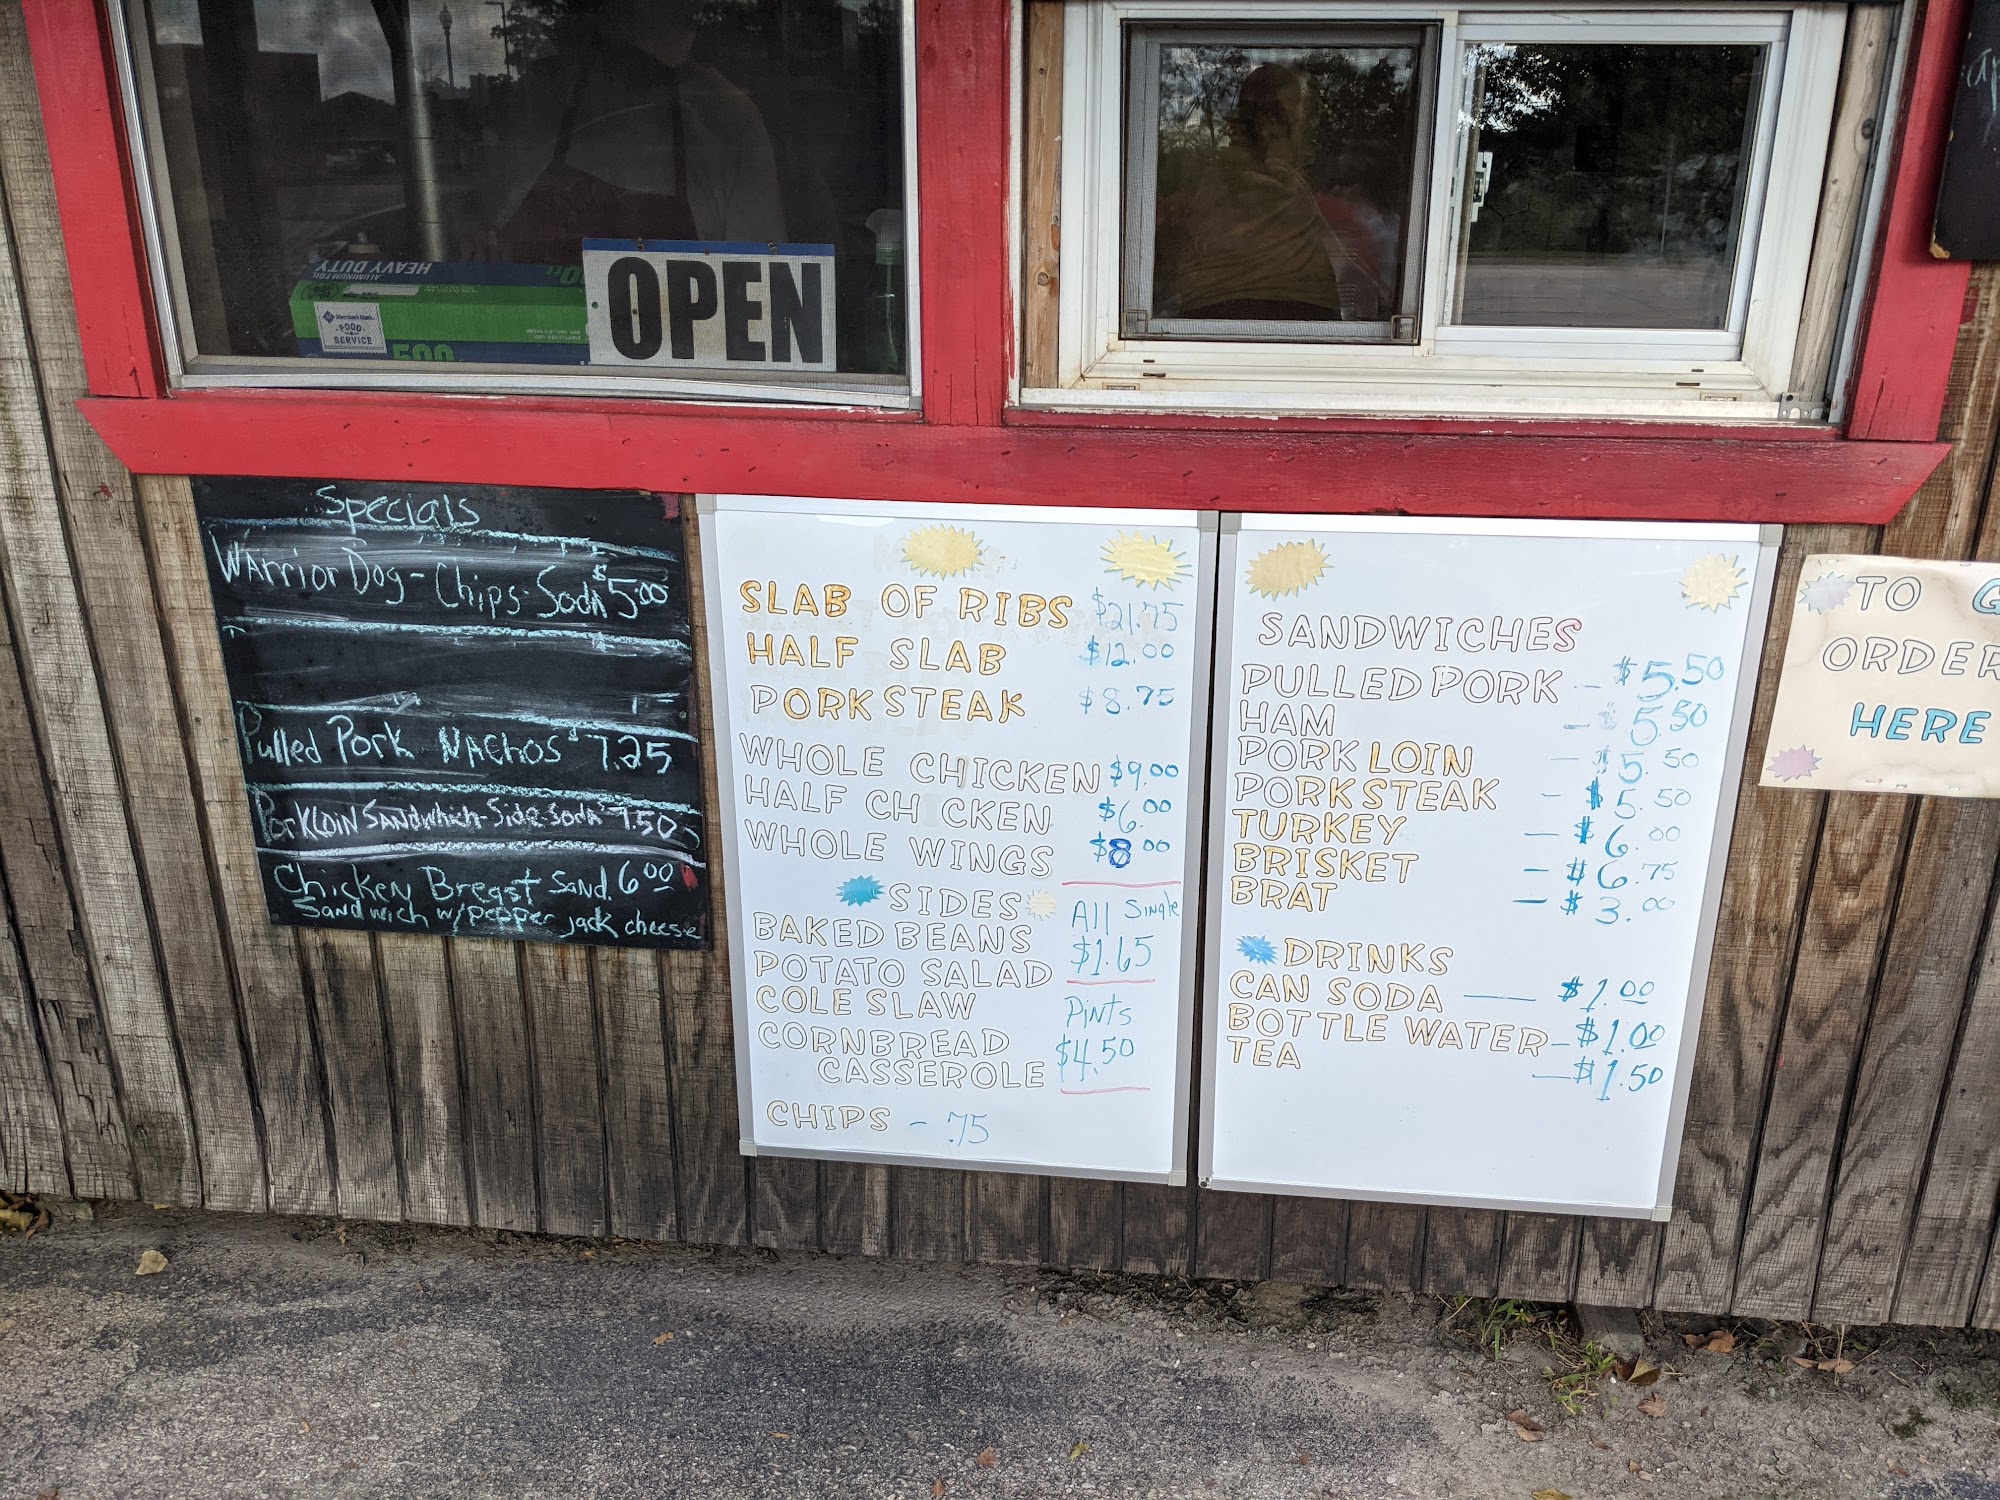 HEAVY DUTY
ALUMINUM FOIL
Member's Mark
FOOD
SERVICE
500
OPEN
Specials
Warrior Dog - Chips - Soda $5.00
Pulled Pork Nachos 7.25
Pork Loin Sandwich - Side Soda 7.50
Chicken Breast Sand. 6.00
Sandwich w/pepper jack cheese
SLAB OF RIBS $21.75
HALF SLAB $12.00
PORK STEAK $8.75
WHOLE CHICKEN $9.00
HALF CHICKEN $6.00
WHOLE WINGS $8.00
SIDES All Single
BAKED BEANS $1.65
POTATO SALAD
COLE SLAW Pints
CORNBREAD $4.50
CASSEROLE
CHIPS - .75
SANDWICHES
PULLED PORK - $5.50
HAM - 5.50
PORK LOIN - $5.50
PORK STEAK - $5.50
TURKEY - $6.00
BRISKET - $6.75
BRAT - $3.00
DRINKS
CAN SODA - $1.00
BOTTLE WATER - $1.00
TEA - $1.50
TO G
ORDER
HERE